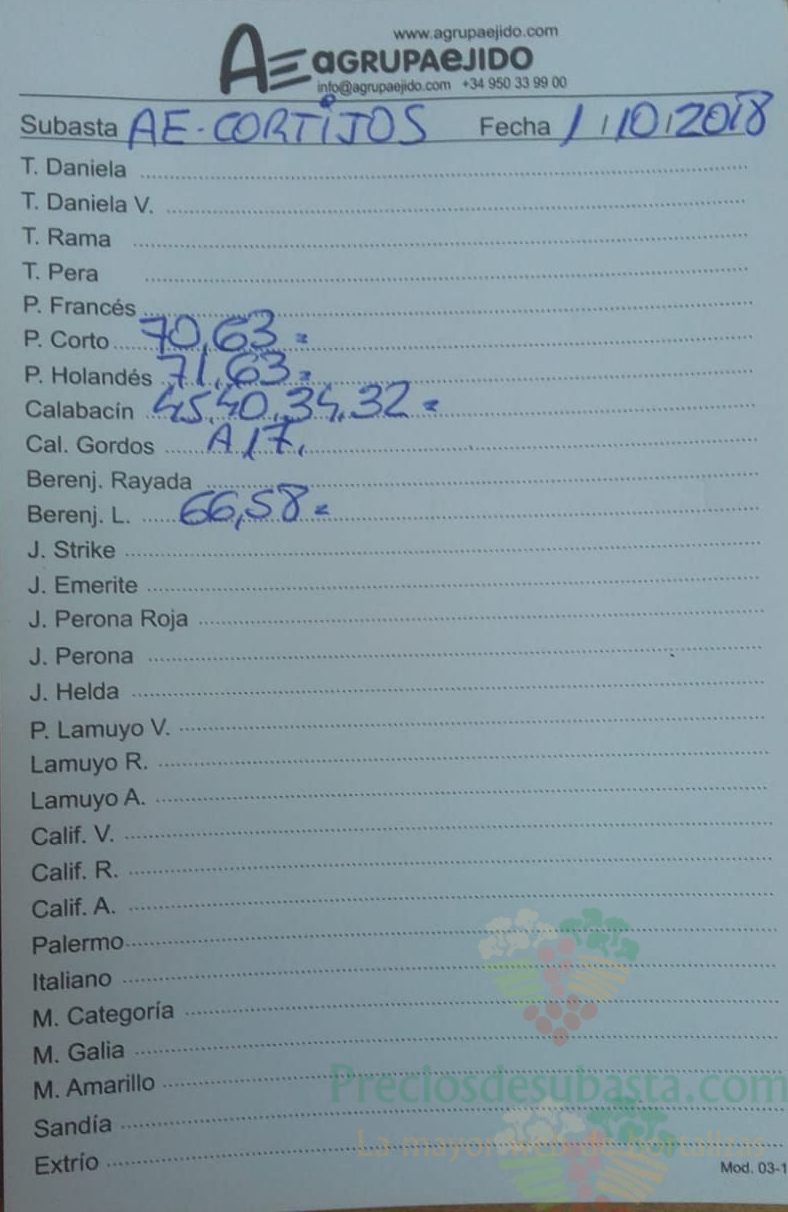 www.agrupaejido.com
AE AGRUPAEJIDO
info@agrupaejido.com +34 950 33 99 00
Subasta AE-CORTIJOS Fecha 1/10/2018
T. Daniela
T. Daniela V.
T. Rama
T. Pera
P. Francés
P. Corto 70,63 =
P. Holandés 71,63 =
Calabacín 45,40,34,32 =
Cal. Gordos A 17,
Berenj. Rayada
Berenj. L. 66,58 =
J. Strike
J. Emerite
J. Perona Roja
J. Perona
J. Helda
P. Lamuyo V.
Lamuyo R.
Lamuyo A.
Calif. V.
Calif. R.
Calif. A.
Palermo
Italiano
M. Categoría
M. Galia
M. Amarillo
Preciosdesubasta.com
Sandía
La mayor web de hortalizas
Extrío
Mod. 03-1